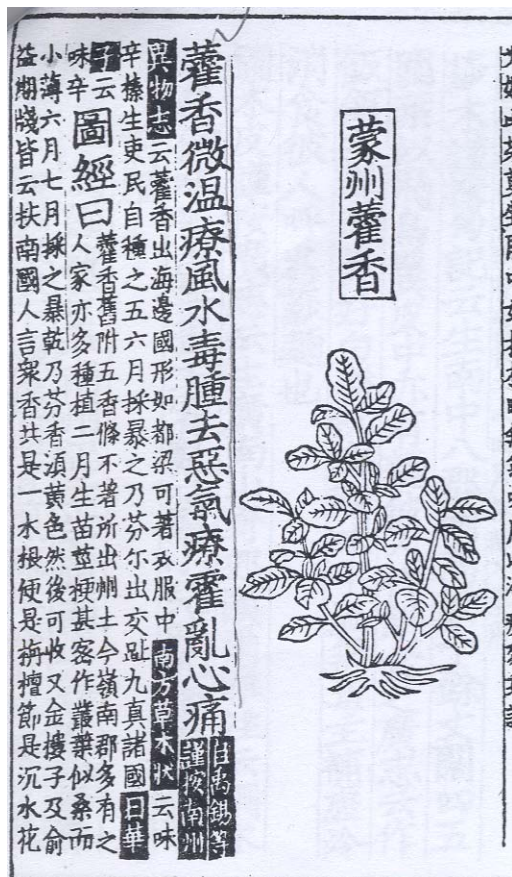 蒙州藿香
藿香微温療風水毒腫去惡氣療霍亂心痛
臣禹錫等
謹按南州
異物志云藿香出海邊國形如都梁可著衣服中南方草木狀云味
辛榛生吏民自種之五六月採暴之乃芬尒出交趾九真諸國日華
子云
味辛
圖經曰
藿香舊附五香條不著所出州土今嶺南郡多有之
人家亦多種植二月生苗莖梗甚密作叢葉似桑而
小薄六月七月採之暴乾乃芬香須黃色然後可收又金樓子及俞
益期牋皆云扶南國人言衆香共是一木根便是栴檀節是沉水花